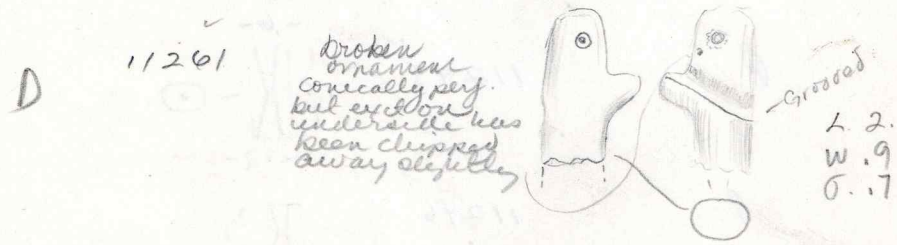 D
11261
broken
ornament
conically perf.
but exit on
underside has
been chipped
away slightly
Grooved
L. 2.
W. .9